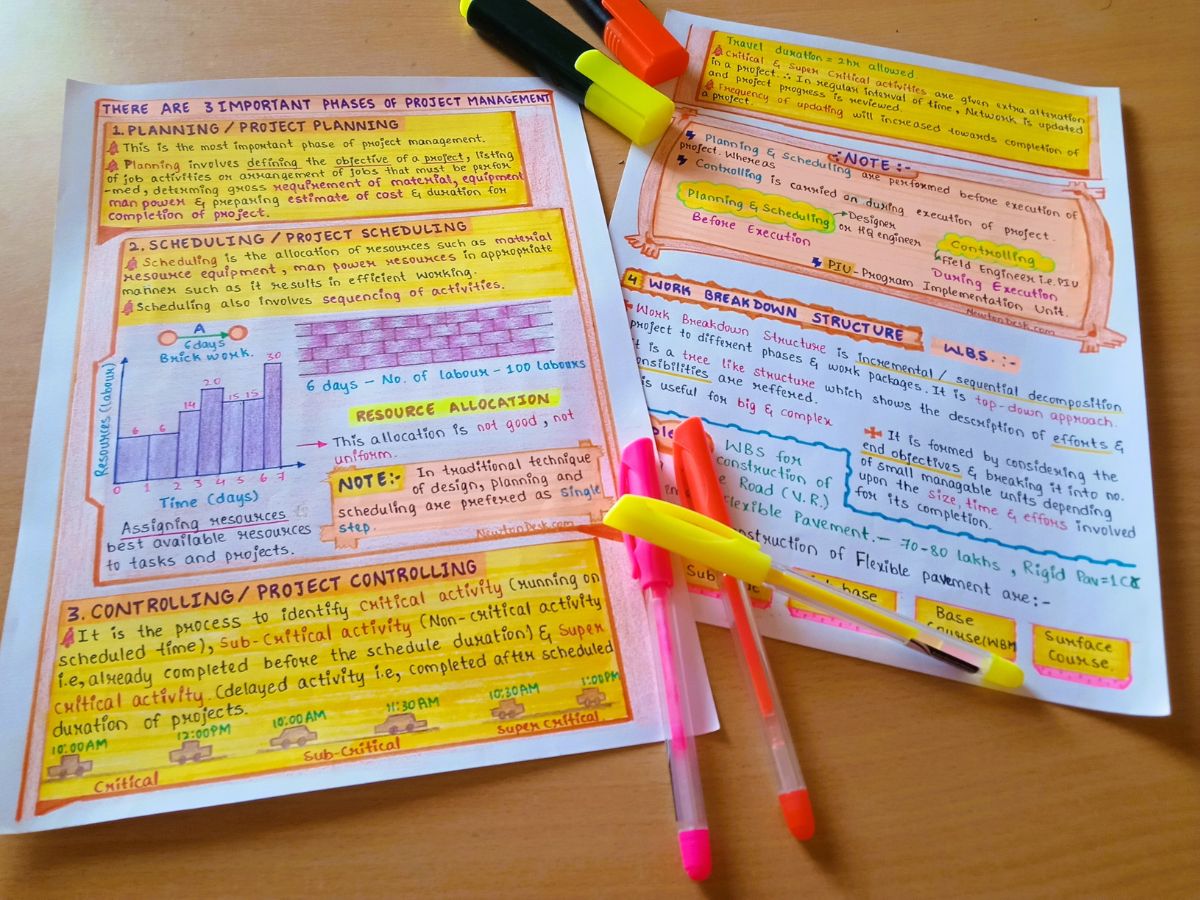 THERE ARE 3 IMPORTANT PHASES OF PROJECT MANAGEMENT
1. PLANNING / PROJECT PLANNING
This is the most important phase of project management.
Planning involves defining the objective of a project, listing
of job activities or arrangement of jobs that must be perfor
-med, determing gross requirement of material, equipment
man power & preparing estimate of cost & duration for
completion of project.
2. SCHEDULING / PROJECT SCHEDULING
Scheduling is the allocation of resources such as material
resource equipment, man power resources in appropriate
manner such as it results in efficient working.
Scheduling also involves sequencing of activities.
A
6 days
Brick work.
6 days – No. of labour – 100 labours
Resources (labour)
6 6 14 20 15 15 30
0 1 2 3 4 5 6 7
Time (days)
RESOURCE ALLOCATION
This allocation is not good, not
uniform.
NOTE:- In traditional technique
of design, planning and
scheduling are prefered as single
step.
NewtonDesk.com
Assigning resources to
best available resources
to tasks and projects.
3. CONTROLLING / PROJECT CONTROLLING
It is the process to identify critical activity (running on
scheduled time), Sub-critical activity (Non-critical activity
i.e, already completed before the schedule duration) & Super
critical activity (delayed activity i.e, completed after scheduled
duration of projects.
10:00AM 12:00PM 10:00AM 11:30AM 10:30AM 1:00PM
Critical Sub-Critical Super Critical
Travel duration = 2hr allowed
Critical & Super Critical activities are given extra attenation
in a project. ∴ In regular interval of time, Network is updated
and project progress is reviewed.
Frequency of updating will increased towards completion of
a project.
:NOTE:-
Planning & Scheduling are performed before execution of
project. Whereas
Controlling is carried on during execution of project.
Planning & Scheduling
Before Execution
Designer
or HQ engineer
Controlling
Field Engineer i.e. PIU
During Execution
PIU-Program Implementation Unit.
NewtonDesk.com
4 WORK BREAKDOWN STRUCTURE W.B.S. :-
Work Breakdown Structure is incremental / sequential decomposition
project to different phases & work packages. It is top-down approach.
It is a tree like structure which shows the description of efforts &
are reffered.
is useful for big & complex
It is formed by considering the
end objectives & breaking it into no.
of small managable units depending
upon the size, time & effors involved
for its completion.
WBS for
construction of
Road (V.R.)
Flexible Pavement.— 70-80 lakhs, Rigid Pav=1CR
of Flexible pavement are:-
Sub
base
Base
Course/WBM
Surface
Course